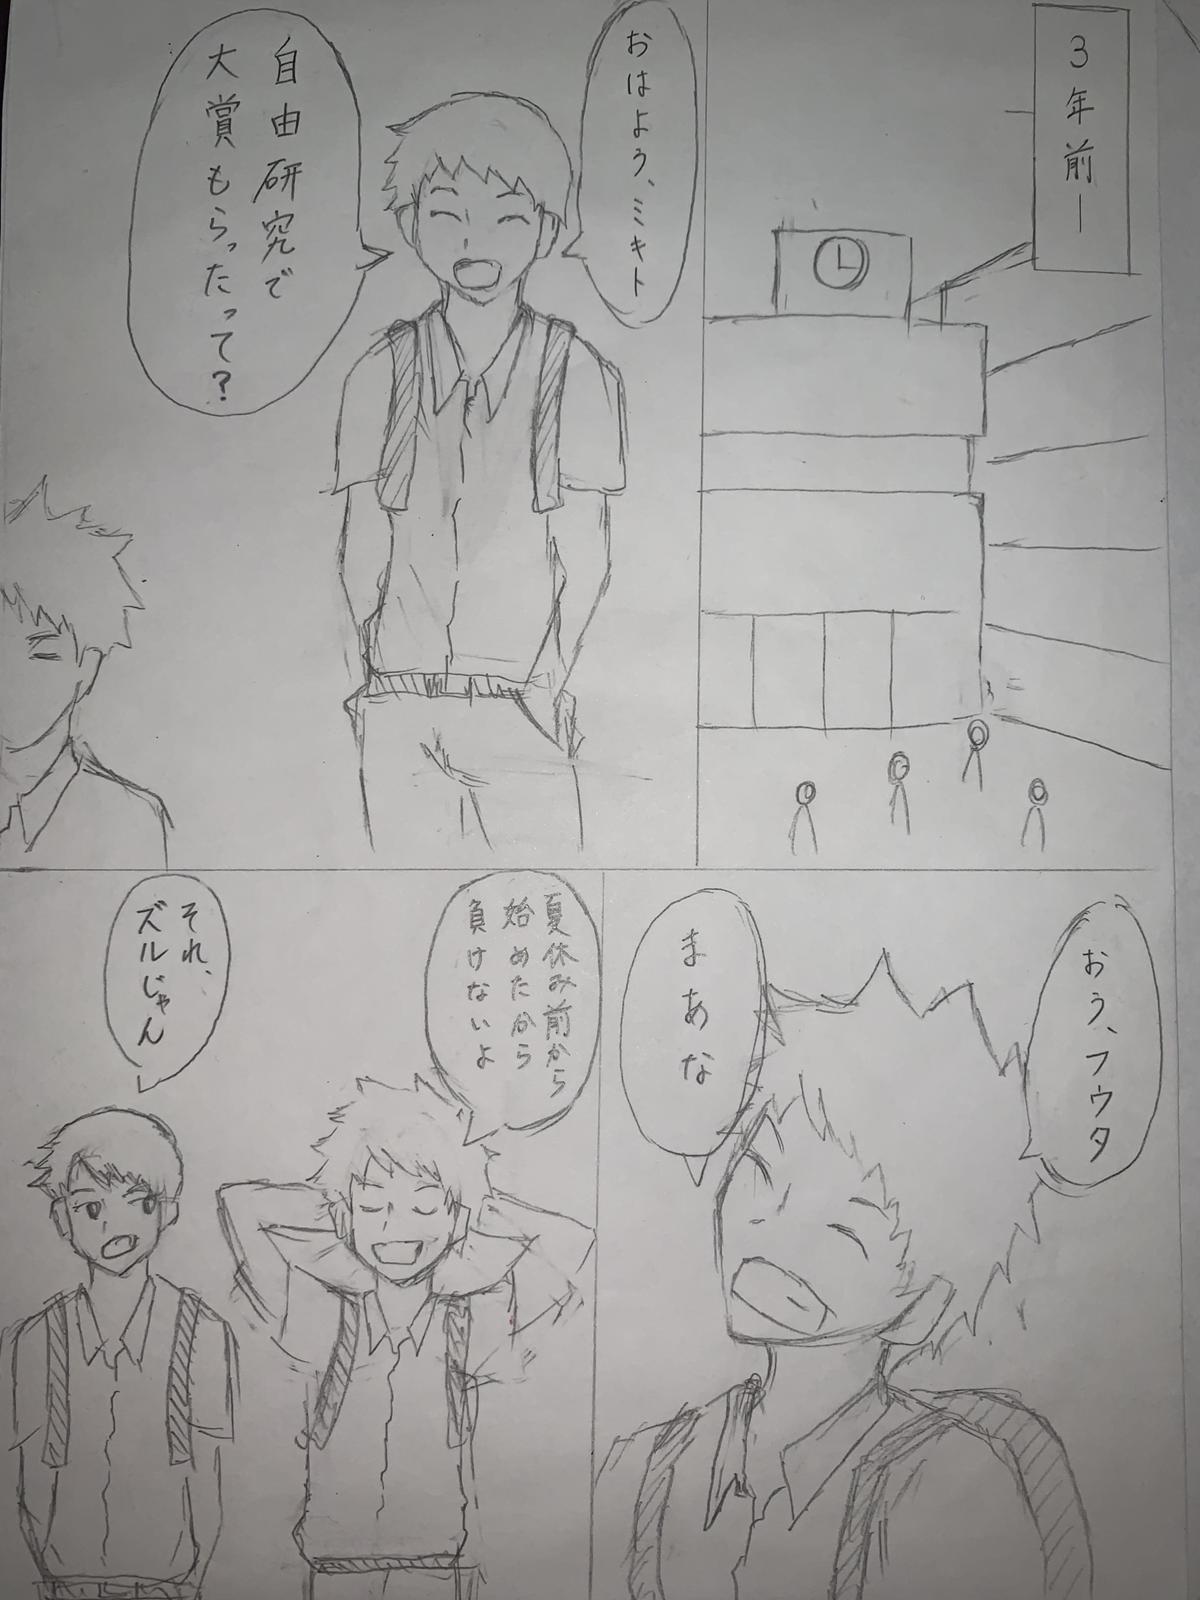 3年前ー
おはよう、ミキト
自由研究で
大賞もらったって？
おう、フウタ
まあな
夏休み前から
始めたから
負けないよ
それ、
ズルじゃん